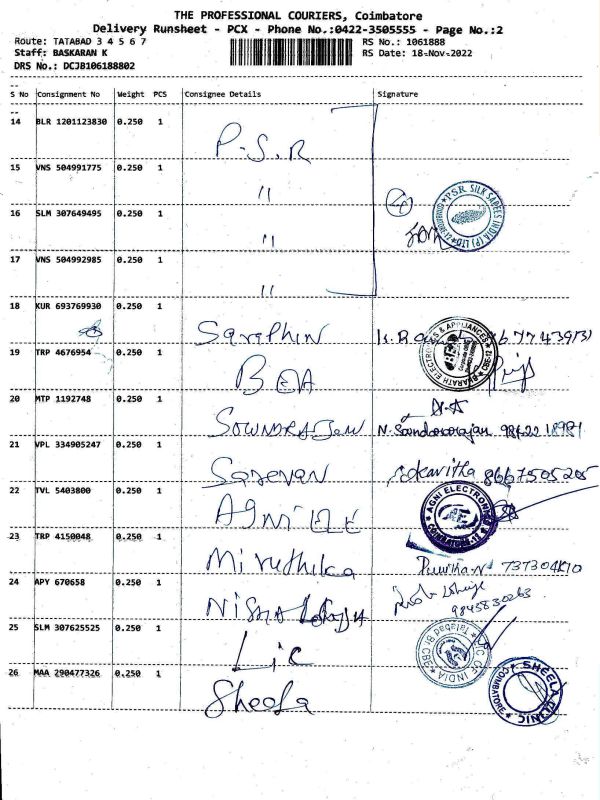 THE PROFESSIONAL COURIERS, Coimbatore
Delivery Runsheet - PCX - Phone No.:0422-3505555 - Page No.:2
Route: TATABAD 3 4 5 6 7 RS No.: 1061888
Staff: BASKARAN K RS Date: 18-Nov-2022
DRS No.: DCJB106188802
--
S No Consignment No Weight PCS Consignee Details Signature
--
14 BLR 1201123830 0.250 1 P.S.R
15 VNS 504991775 0.250 1 "
16 SLM 307649495 0.250 1 "
PSR SILK SAREES INDIA (P) LTD
17 VNS 504992985 0.250 1 "
18 KUR 693769930 0.250 1
BHARATH ELECTRONICS & APPLIANCES CBE-12
19 TRP 4676954 0.250 1
20 MTP 1192748 0.250 1 N. Soundararajan
21 VPL 334905247 0.250 1 Saravan kavitha 8667505205
22 TVL 5403800 0.250 1 AGNI ELE
AGNI ELECTRONIC
23 TRP 4150048 1 Miruthika
24 APY 670658 0.250 1 NISHA 9845830263
25 SLM 307625525 0.250 1 Lic
L.I.C OF INDIA Tatabad Br. CBE
26 MAA 290477326 0.250 1 Sheela
SHEELA CLINIC COIMBATORE